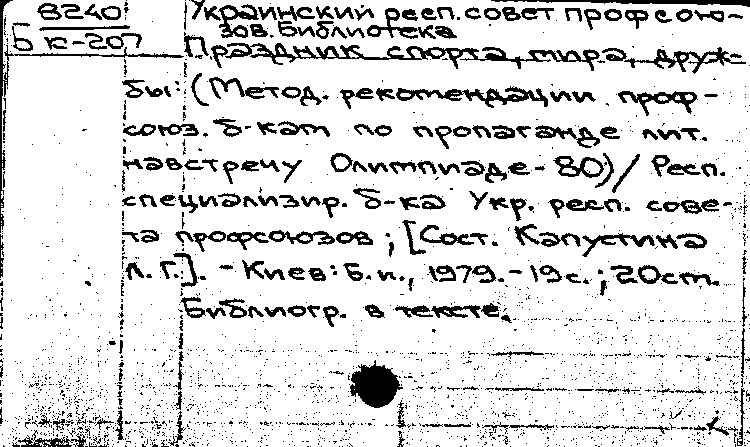 8240
Б к-207
Украинский респ. совет профсою-
зов. Библиотека
Праздник спорта, мира, друж-
бы: (Метод. рекомендации проф-
союз. б-кам по пропаганде лит.
навстречу Олимпиаде-80)/ Респ.
специализир. б-ка Укр. респ. сове-
та профсоюзов; [Сост. Капустина
Л. Г.]. - Киев: Б. и., 1979. - 19 с.; 20 см.
Библиогр. в тексте.